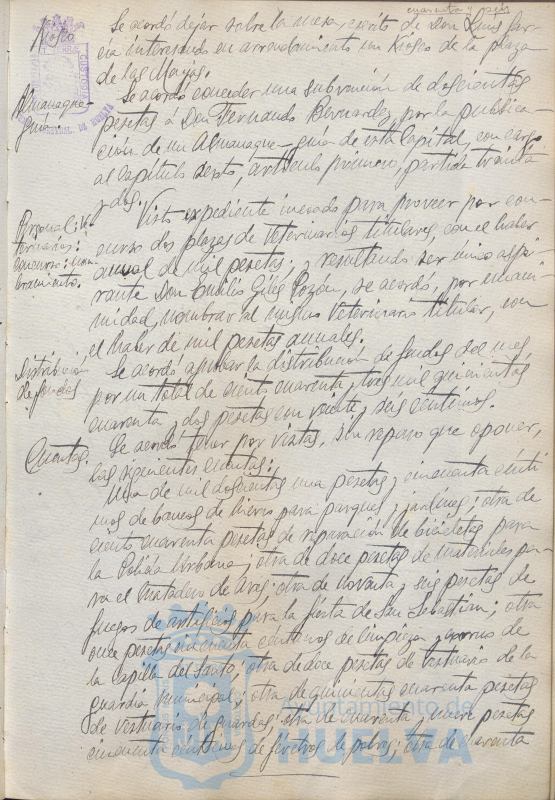 cuarenta y seis
Kiosco
Se acordó dejar sobre la mesa, escrito de Don Luis Gar
cía interesando en arrendamiento un Kiosco de la plaza
de las Monjas.
Almanaque-
guía.
Se acordó conceder una subvención de doscientas
pesetas á Don Fernando Bernardez, por la publica-
ción de un Almanaque-guía de esta Capital, con cargo
al capítulo sexto, artículo primero, partida treinta
y dos.
Personal: Ve-
terinarios:
concurso: nom-
bramiento.
Visto expediente incoado para proveer por con-
curso dos plazas de Veterinarios titulares, con el haber
anual de mil pesetas, y resultando ser único aspi
rante Don Emilio Giles Pozón, se acordó, por unani-
midad, nombrar al mismo Veterinario titular, con
el haber de mil pesetas anuales.
Distribución
de fondos
Se acordó aprobar la distribución de fondos del mes,
por un total de ciento cuarenta y tres mil quinientas
cuarenta y dos pesetas con veinte y seis centimos.
Cuentas.
Se acordó tener por vistas, sin reparo que oponer,
las siguientes cuentas:
Una de mil doscientas una pesetas, cincuenta cénti
mos de bancos de hierro para parques y jardines; otra de
ciento cuarenta pesetas de reparación de bicicletas para
la Policía Urbana; otra de doce pesetas de materiales pa-
ra el Matadero de Aves; otra de noventa y seis pesetas de
fuegos de artificios para la fiesta de San Sebastian; otra
once pesetas cincuenta centimos de limpieza y adorno de
la capilla del Santo; otra de doce pesetas de vestuario de la
guardia municipal; otra de quinientas cuarenta pesetas
de vestuario de guardas; otra de cuarenta y nueve pesetas
cincuenta centimos de féretros de pobres; otra de cuarenta
Ayuntamiento de
HUELVA